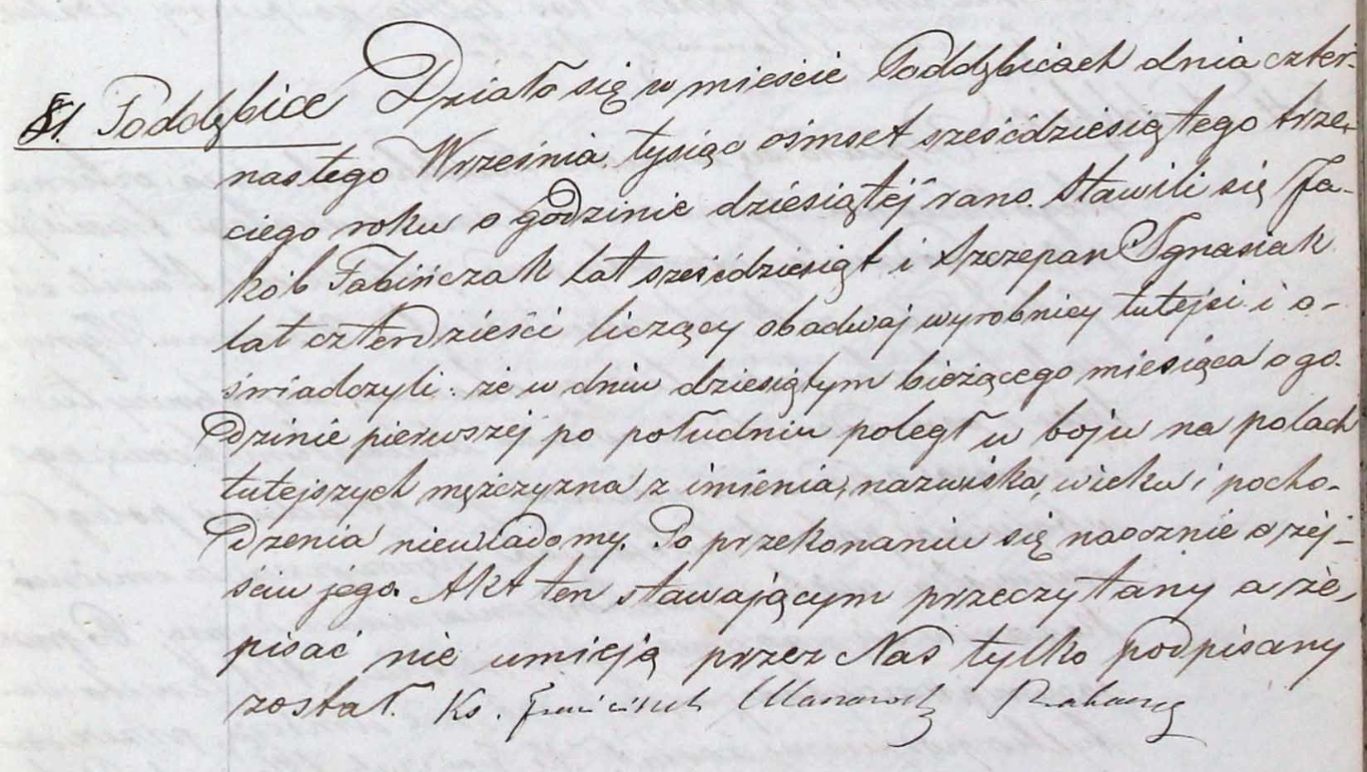 81. Poddębice Działo się w mieście Poddębicach dnia czter-
nastego Września tysiąc ośmset sześćdziesiątego trze-
ciego roku o godzinie dziesiątéj rano. Stawili się Ja-
kób Fabińczak lat sześćdziesiąt i Szczepan Ignasiak
lat czterdzieści liczący obadwaj wyrobnicy tutejsi i o-
świadczyli: że w dniu dziesiątym bieżącego miesiąca o go-
dzinie pierwszéj po południu poległ w boju na polach
tutejszych mężczyzna z imienia, nazwiska, wieku i pocho-
dzenia niewiadomy. Po przekonaniu się naocznie o zéj-
ściu jego. Akt ten stawającym przeczytany a że,
pisać nie umieją przez Nas tylko podpisany
został. Ks. Franciszek